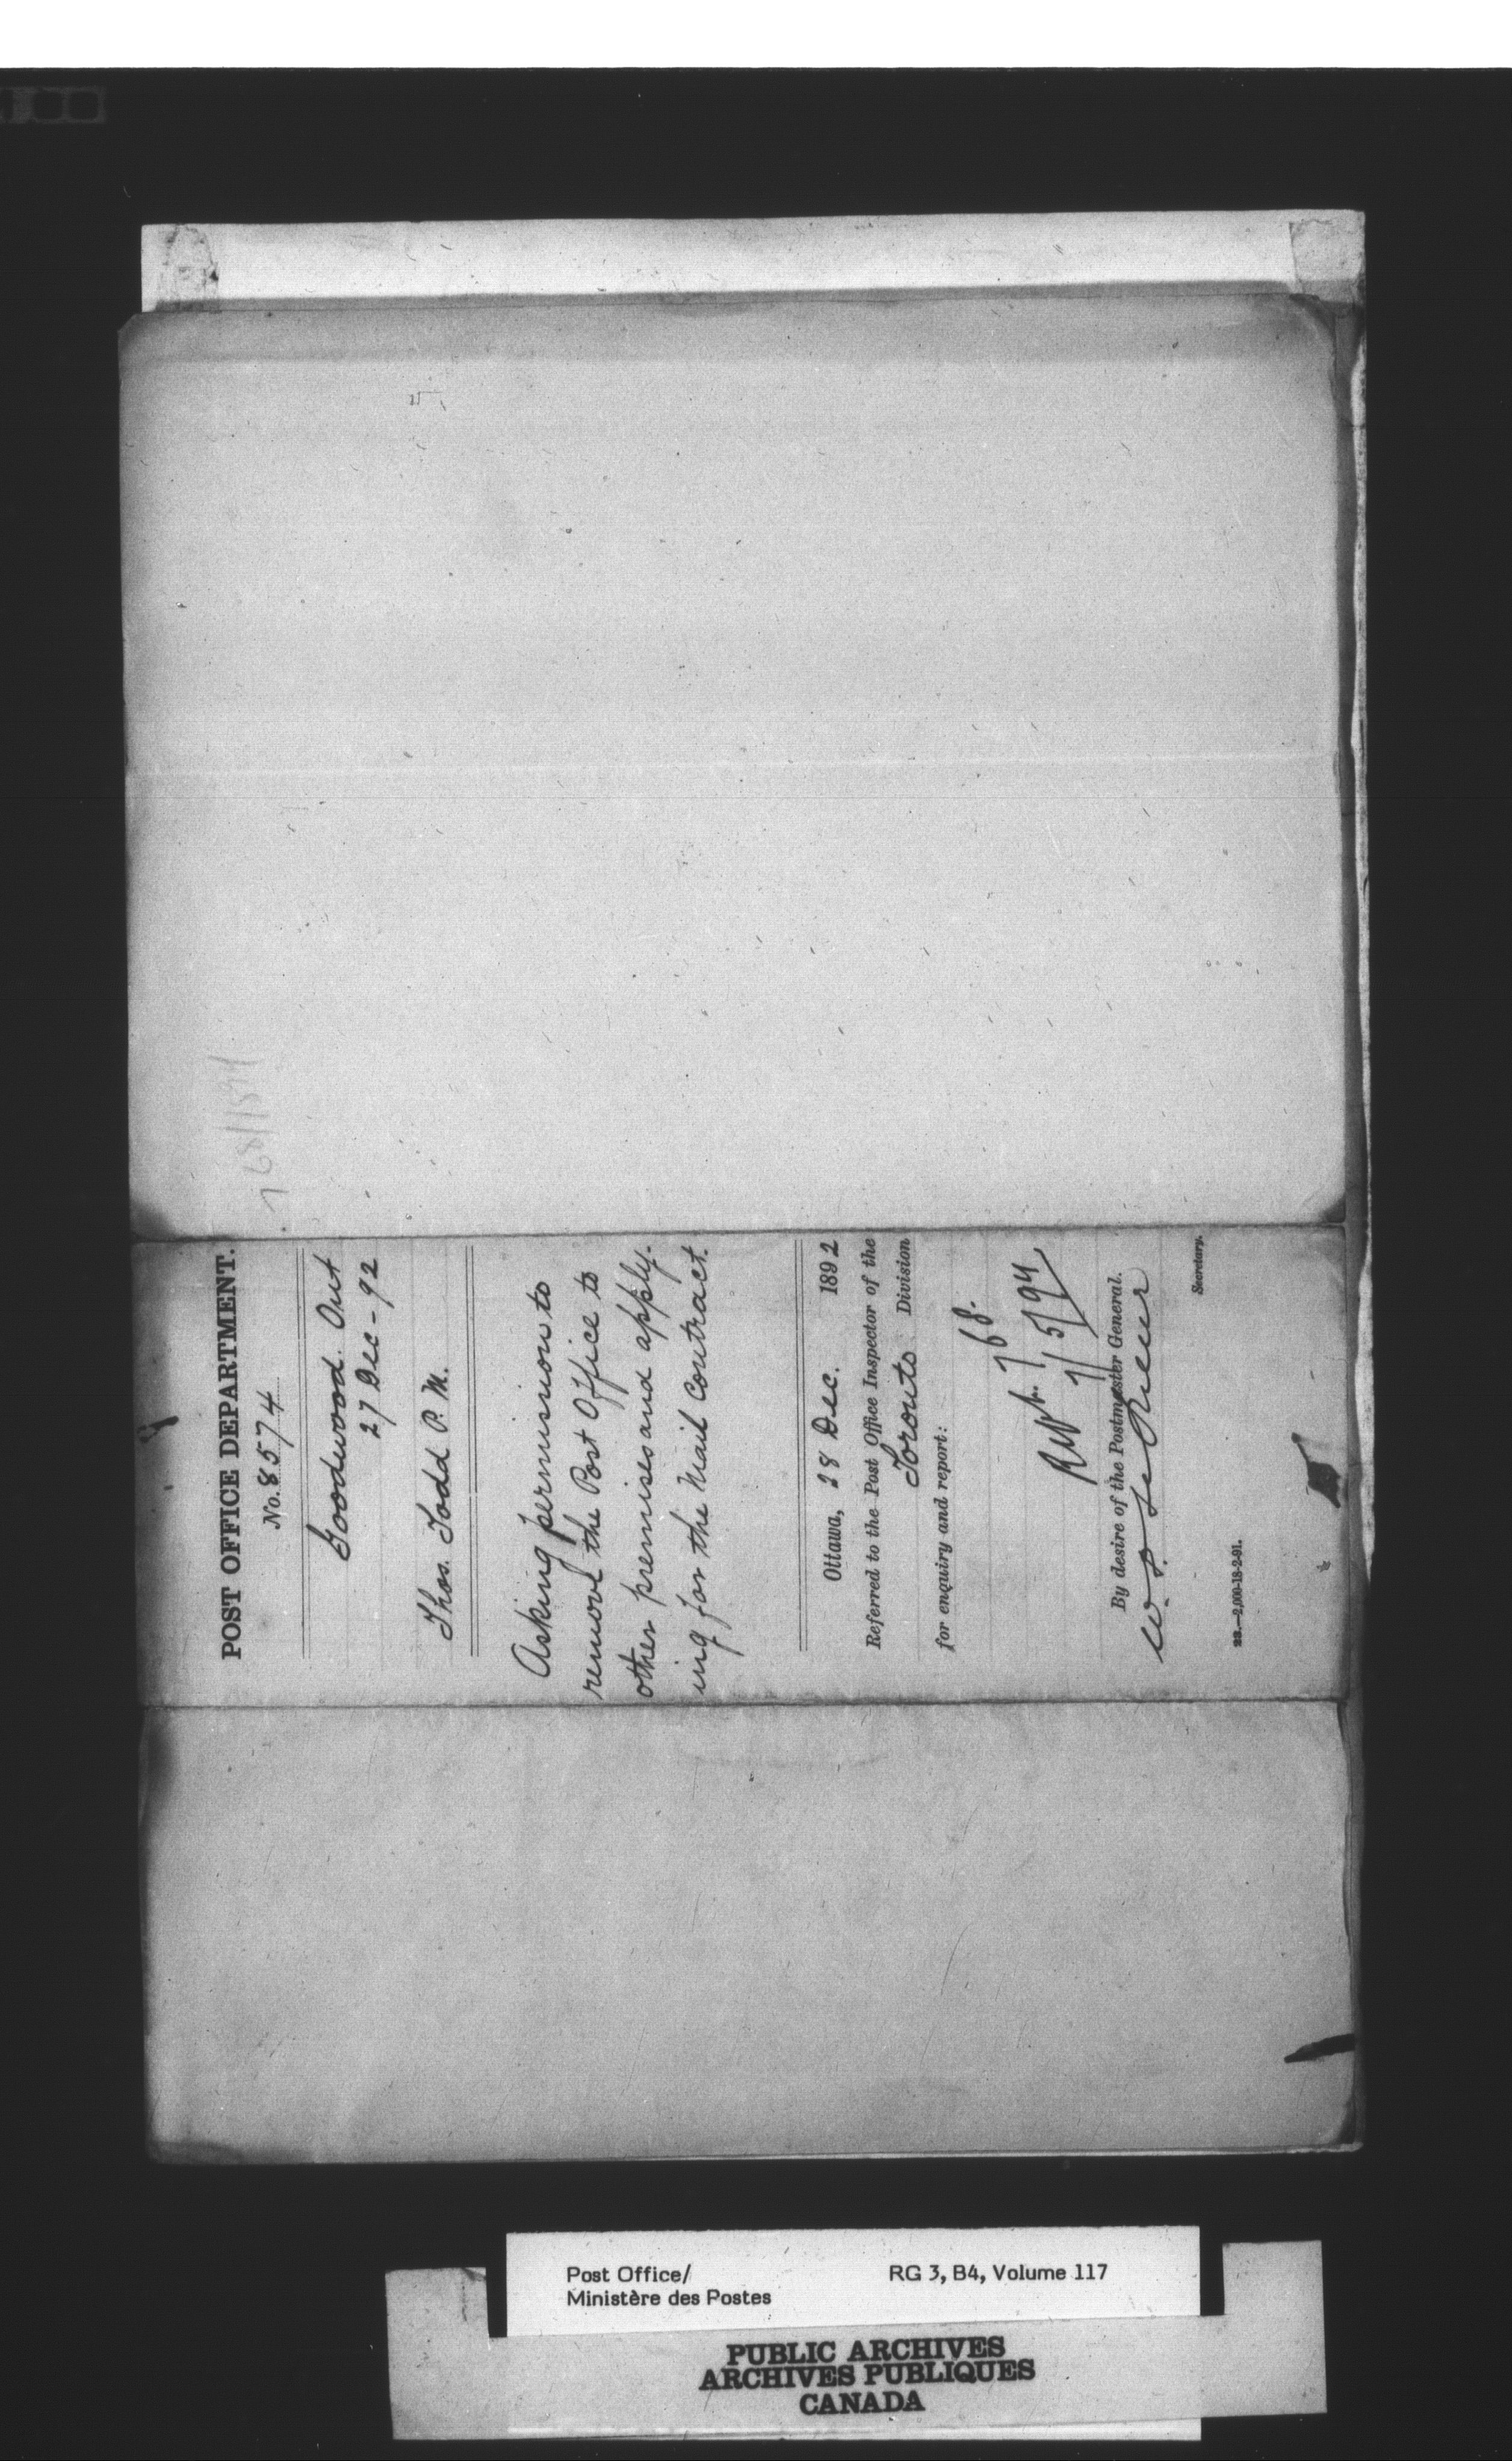 768/1894
POST OFFICE DEPARTMENT.
No. 8574
Goodwood. Ont
27 Dec - 92
Thos. Todd P. M.
Asking permission to
remove the Post Office to
other premises and apply-
ing for the Mail Contract.
Ottawa, 28 Dec. 1892
Referred to the Post Office Inspector of the
Toronto Division
for enquiry and report:
768.
1/5/94
By desire of the Postmaster General.
Secretary.
23.—2,000-18-2-91.
Post Office/
Ministère des Postes
RG 3, B4, Volume 117
PUBLIC ARCHIVES
ARCHIVES PUBLIQUES
CANADA